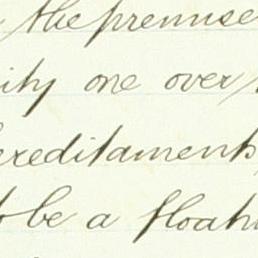 the premise
ity one over
ereditaments
to be a floati